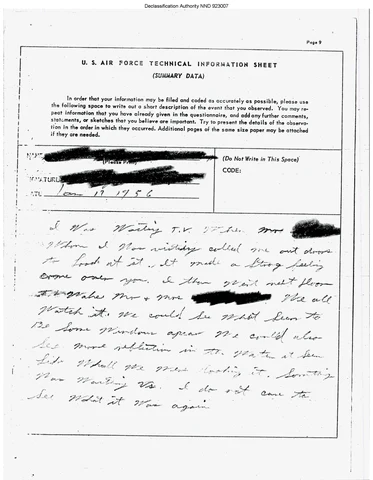 Declassification Authority NND 923007
Page 9
U. S. AIR FORCE TECHNICAL INFORMATION SHEET
(SUMMARY DATA)
In order that your information may be filed and coded as accurately as possible, please use
the following space to write out a short description of the event that you observed. You may re-
peat information that you have already given in the questionnaire, and add any further comments,
statements, or sketches that you believe are important. Try to present the details of the observa-
tion in the order in which they occurred. Additional pages of the same size paper may be attached
if they are needed.
NAME
(Please Print)
(Do Not Write in This Space)
CODE:
Jan 19 1956
I Was Wating T.V. When Mrs
Whom I Was visiting called me out doors
to look at it. It made a Strong feeling
come over you. I then went next door
to Wake Mr & Mrs We all
Watch it. We could see What Seem to
Be Some Windows apear We could also
see more reflection in the Water it Seem
like While We Were looking it. Something
Was Watching Us. I do not care to
See What it Was again